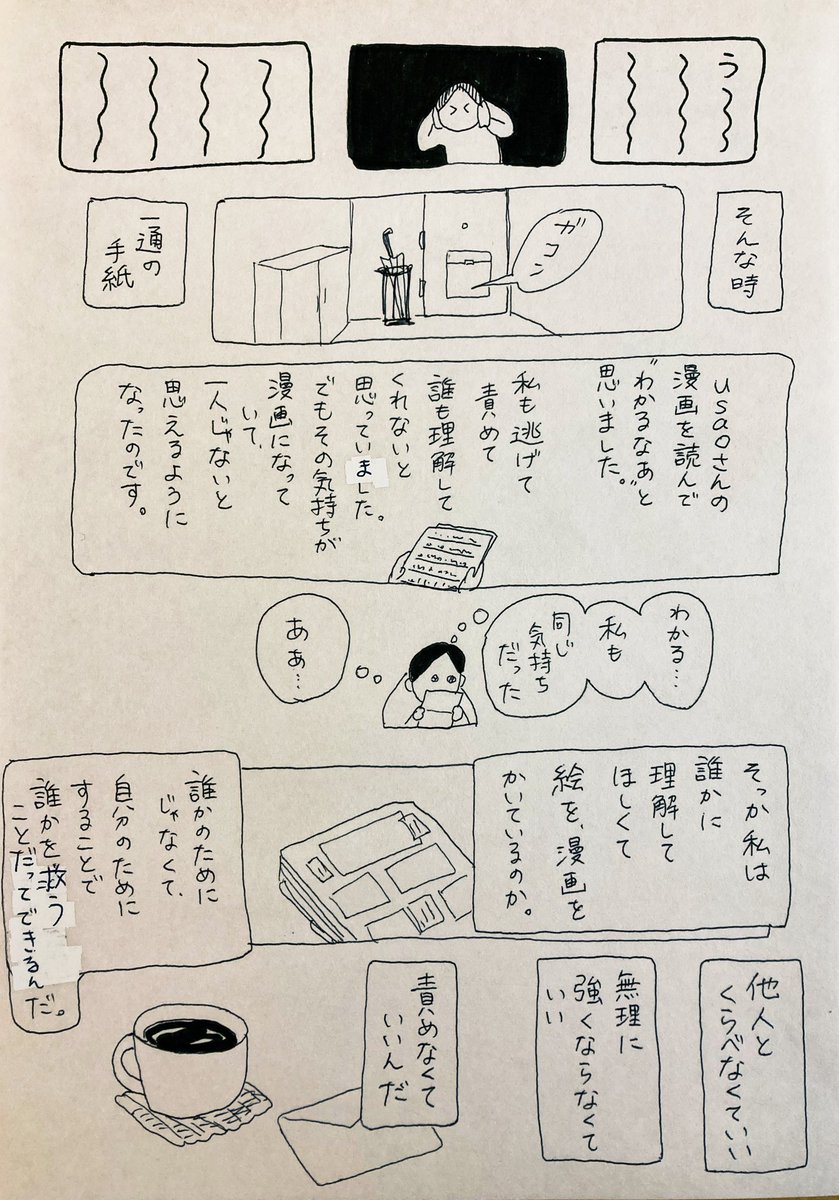 う
そんな時
ガコン
一通の
手紙
usaoさんの
漫画を読んで
“わかるなぁ”と
思いました。
私も逃げて
責めて
誰も理解して
くれないと
思っていました。
でもその気持ちが
漫画になって
いて、
一人じゃないと
思えるように
なったのです。
わかる…
私も
同じ
気持ち
だった
あぁ…
そっか私は
誰かに
理解して
ほしくて
絵を、漫画を
かいているのか。
誰かのために
じゃなくて、
自分のために
することで
誰かを救う
ことだってできるんだ。
他人と
くらべなくていい
無理に
強くならなくて
いい
責めなくて
いいんだ